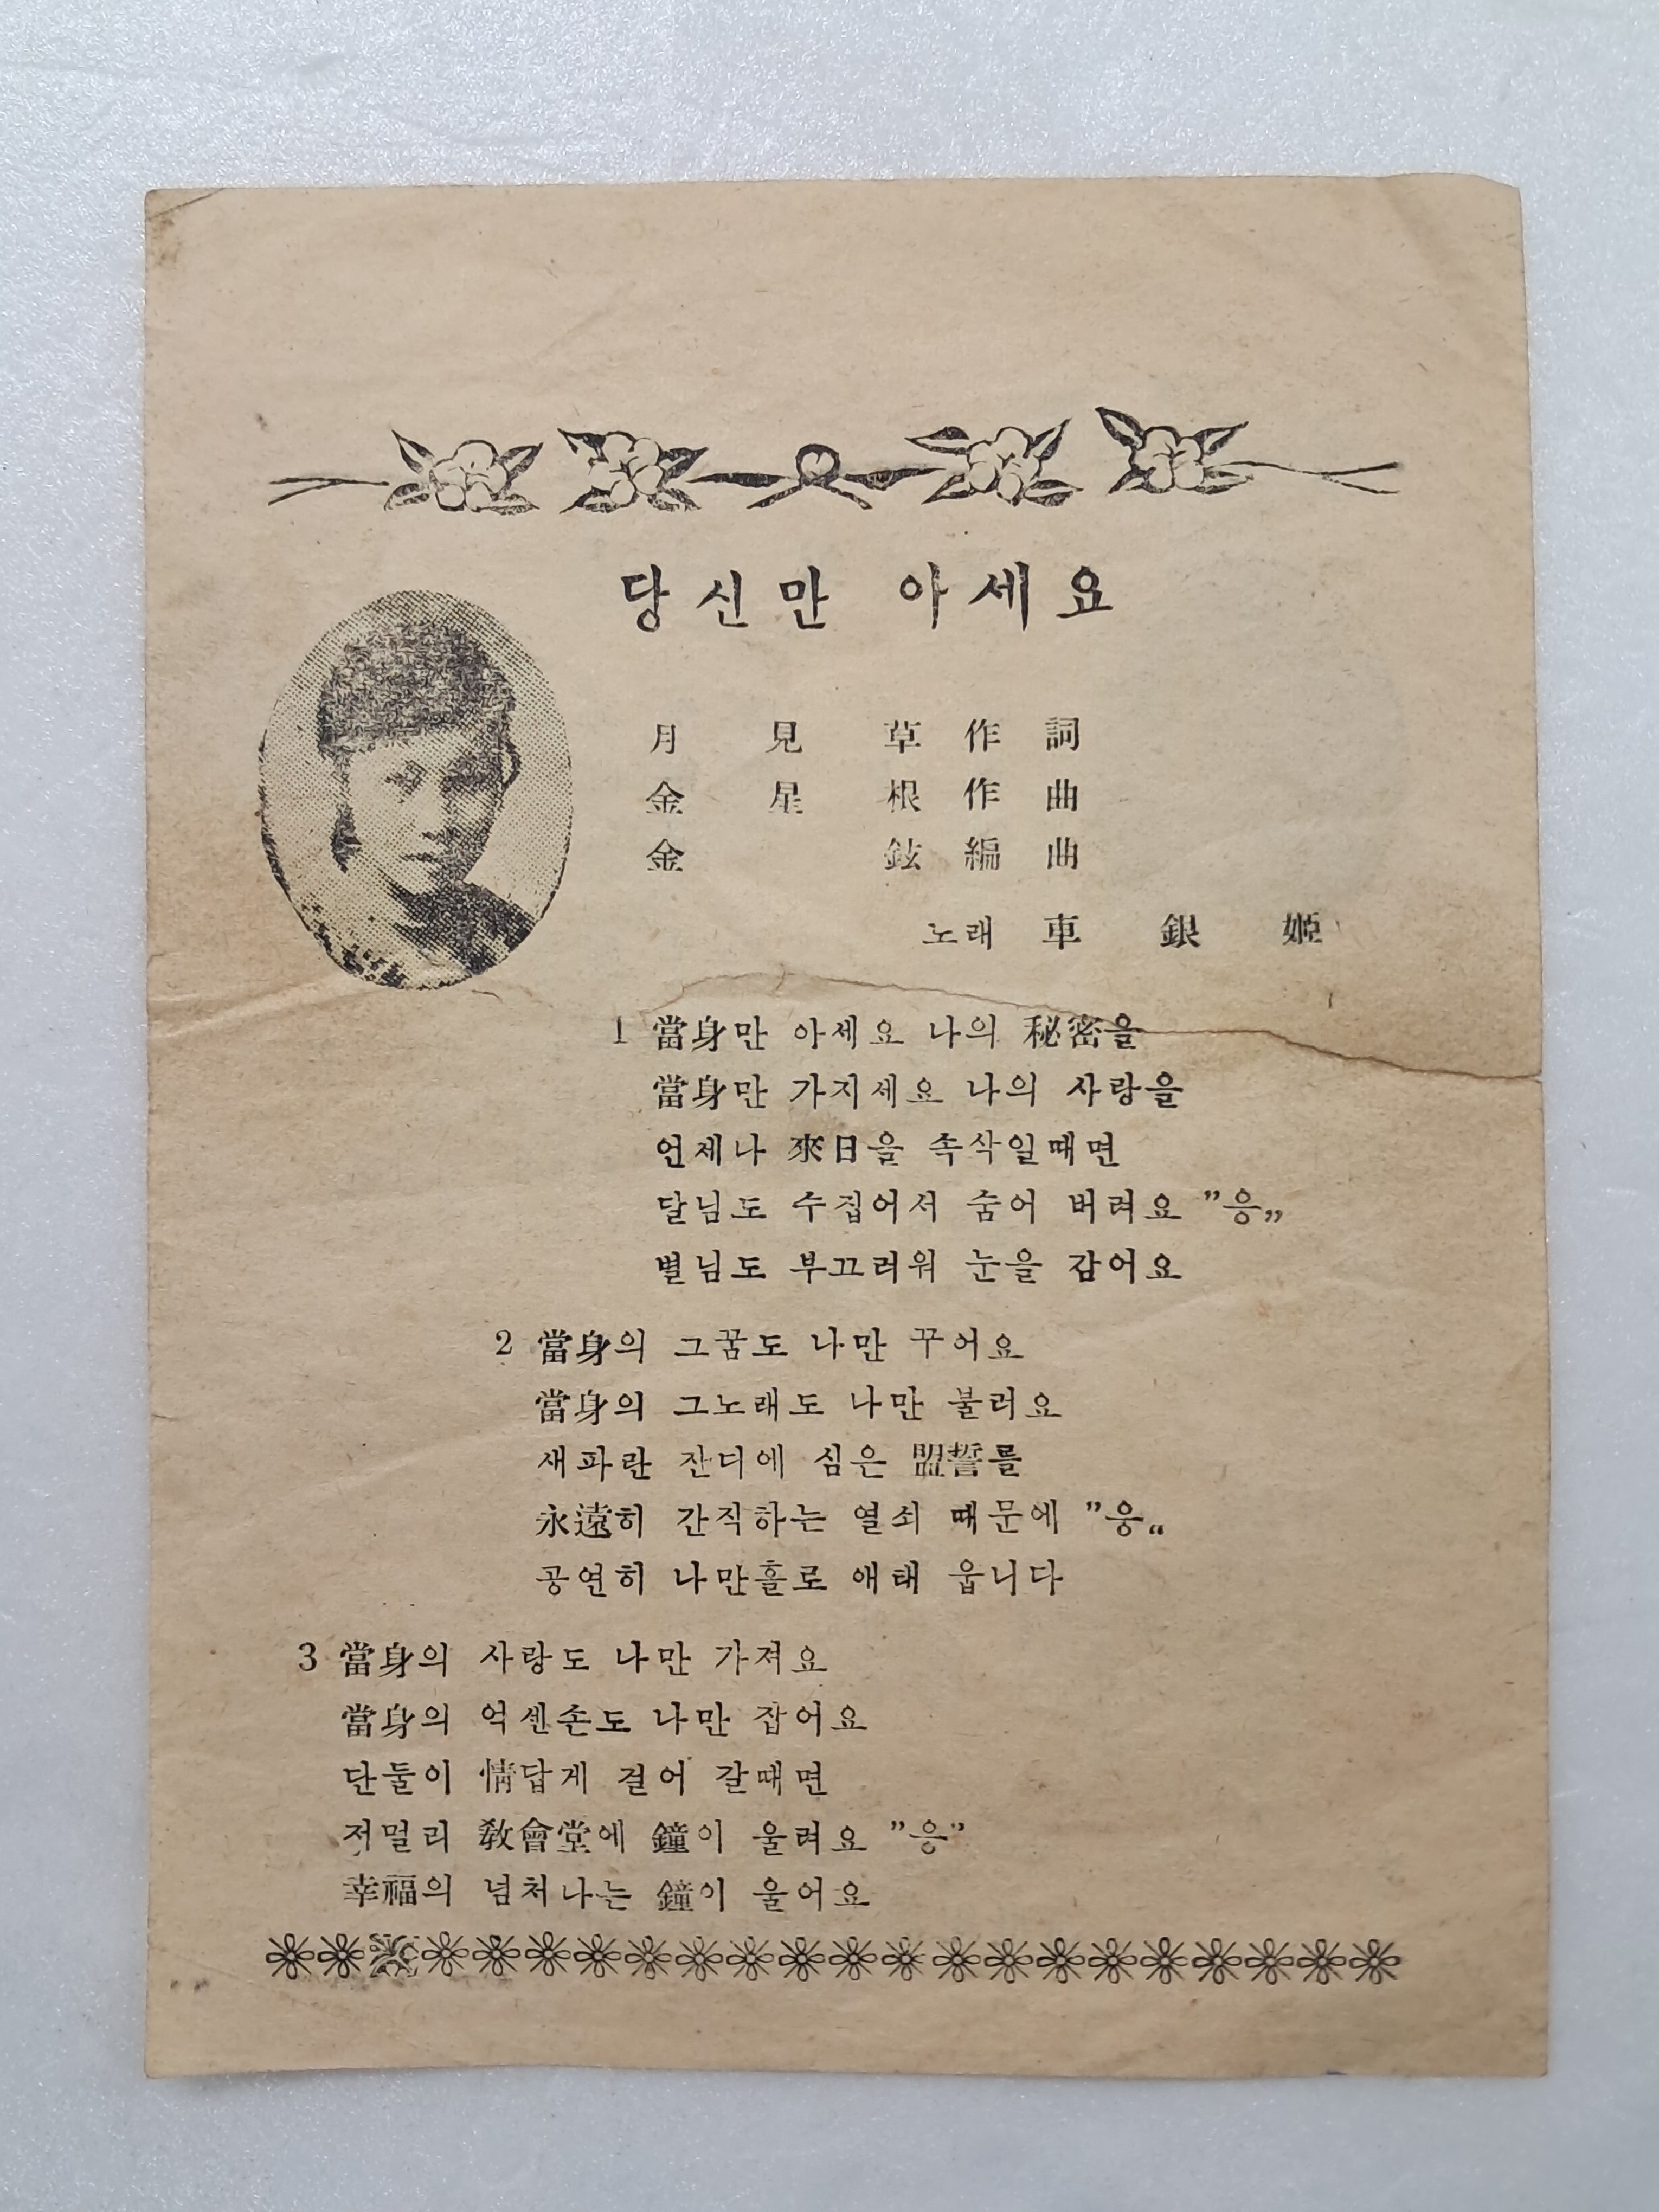 당신만 아세요
月見草 作詞
金星根 作曲
金鉉 編曲
노래 車銀姬
1 當身만 아세요 나의 秘密을
當身만 가지세요 나의 사랑을
언제나 來日을 속삭일때면
달님도 수집어서 숨어 버려요 ”응„
별님도 부끄러워 눈을 감어요
2 當身의 그꿈도 나만 꾸어요
當身의 그노래도 나만 불러요
새파란 잔디에 심은 盟誓를
永遠히 간직하는 열쇠 때문에 ”응„
공연히 나만홀로 애태 웁니다
3 當身의 사랑도 나만 가져요
當身의 억센손도 나만 잡어요
단둘이 情답게 걸어 갈때면
저멀리 敎會堂에 鐘이 울려요 ”응”
幸福의 넘처나는 鐘이 울어요